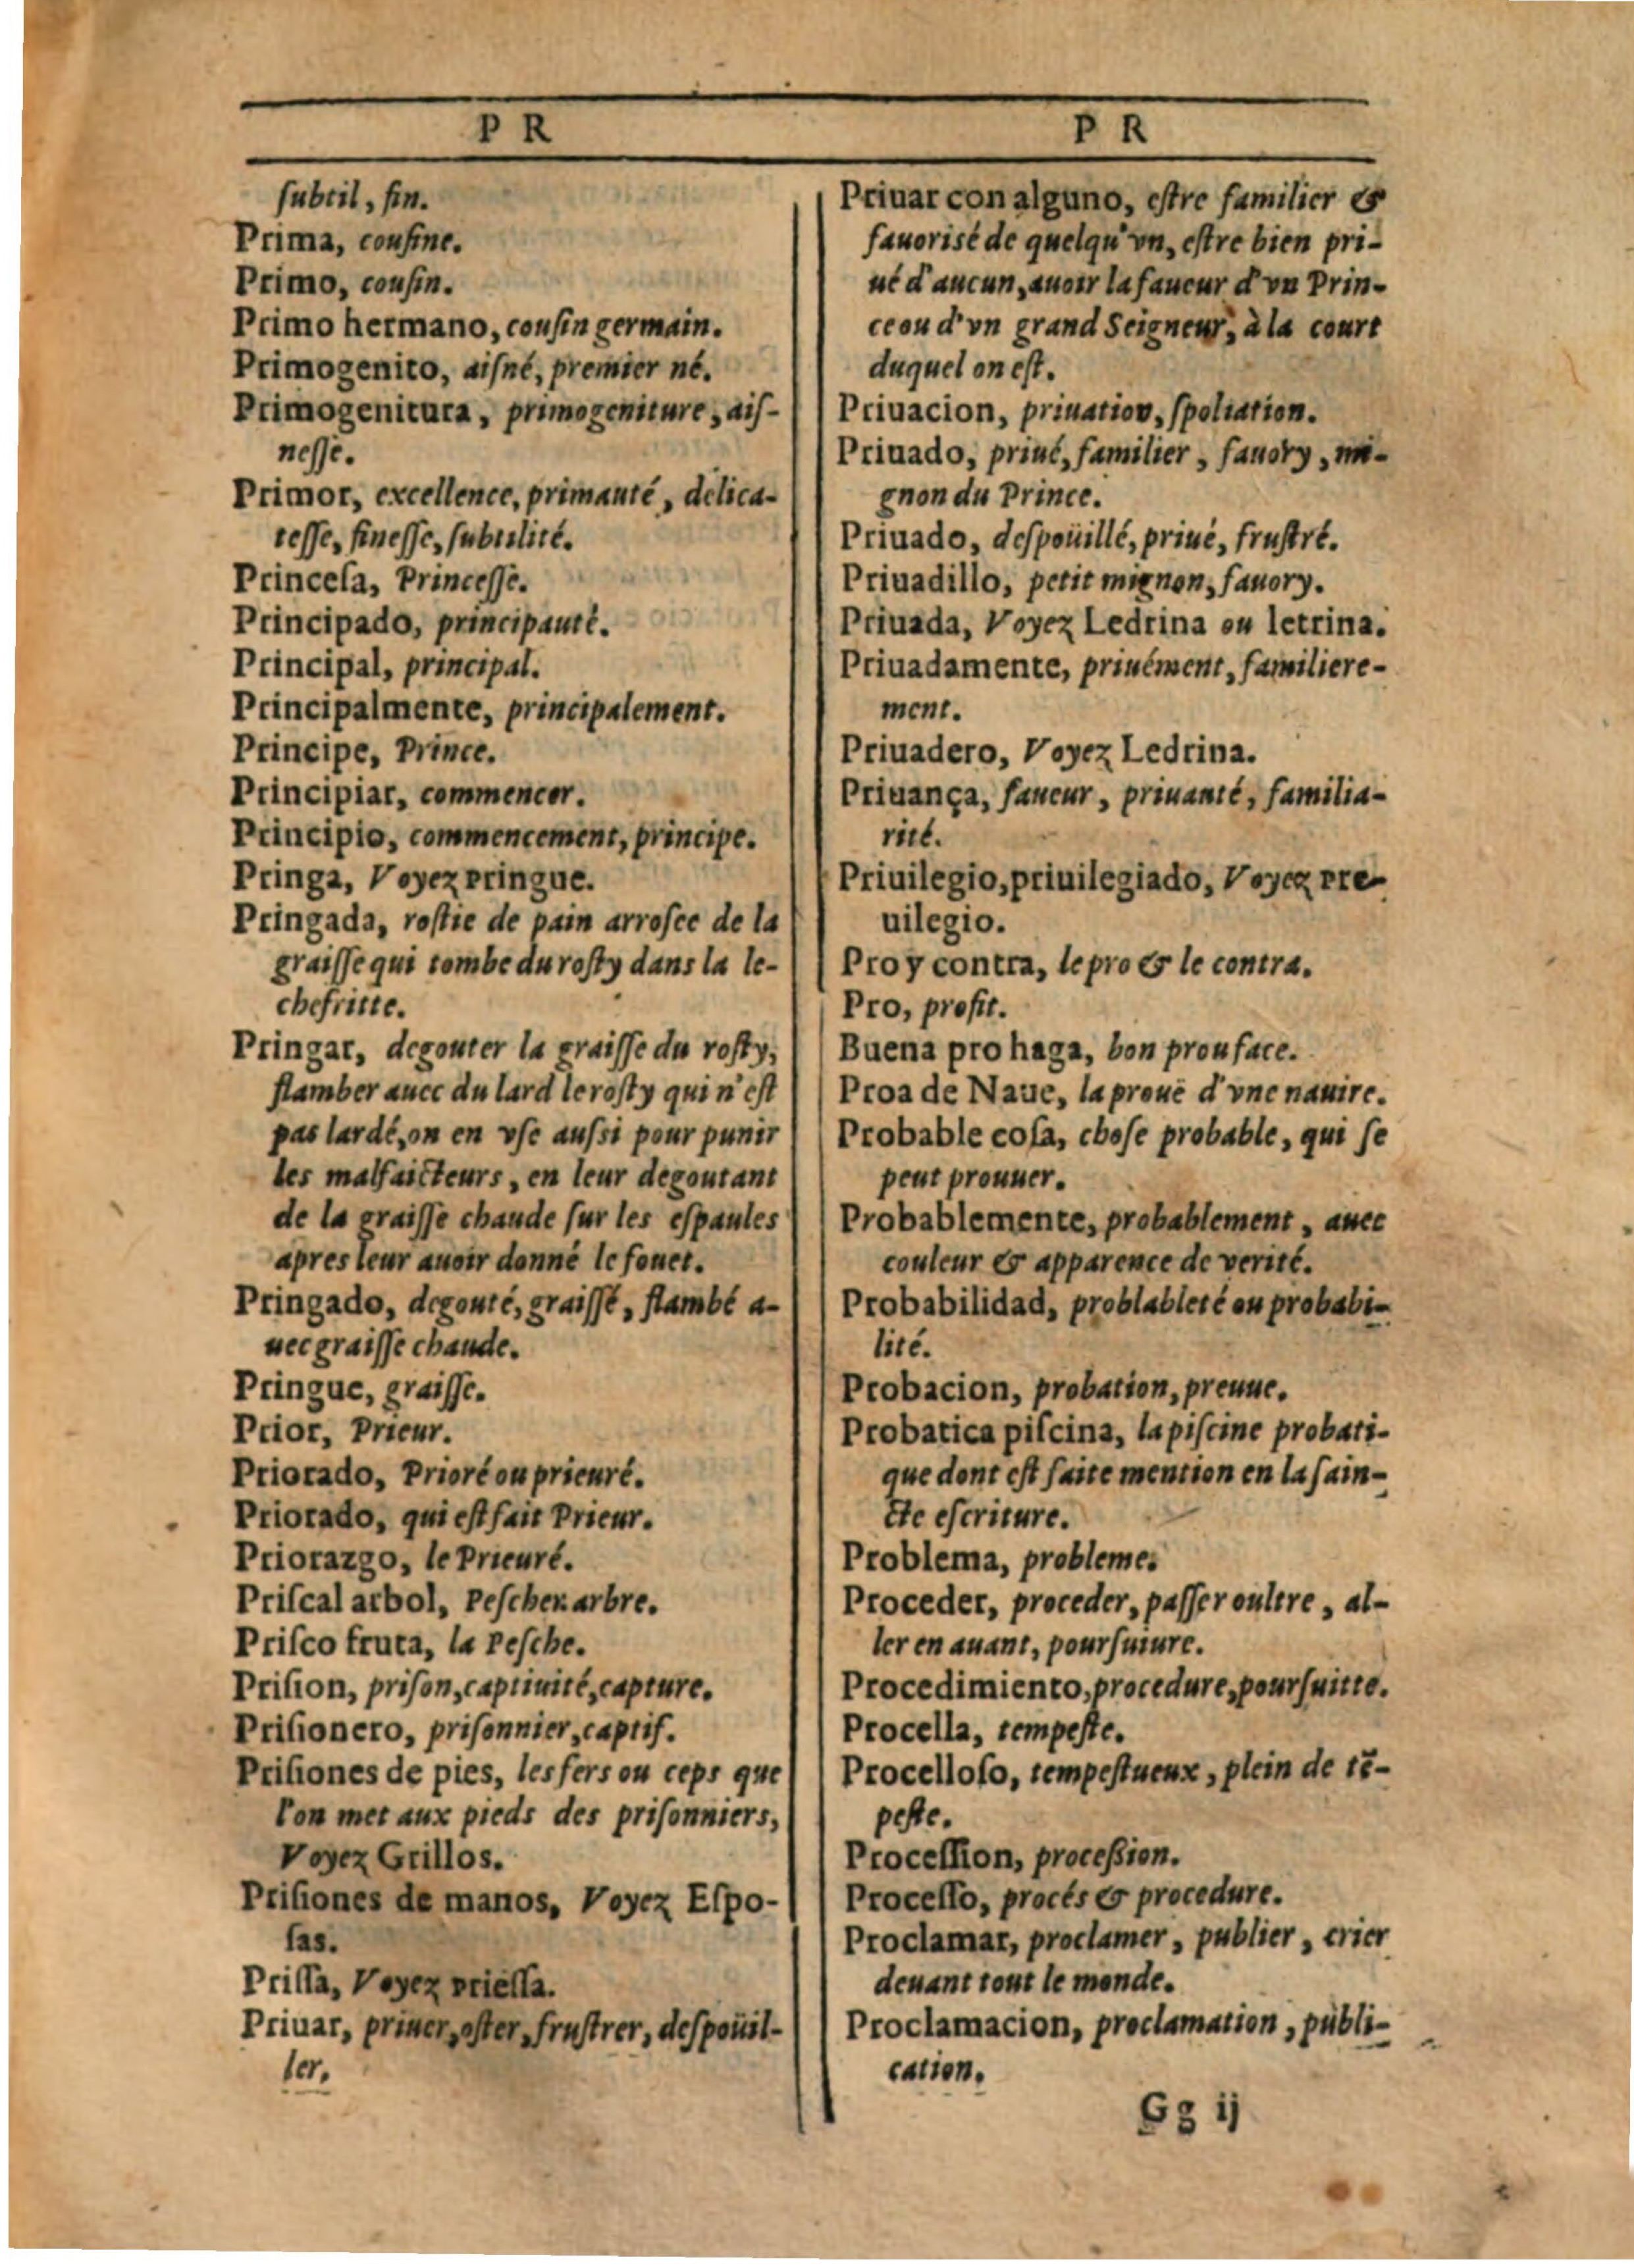 P R
ſubtil, fin.
Prima, couſine.
Primo, couſin.
Primo hermano, couſin germain.
Primogenito, aiſné, premier né.
Primogenitura, primogeniture, aiſ-
neſſe.
Primor, excellence, primauté, delica-
teſſe, fineſſe, ſubtilité.
Princeſa, Princeſſe.
Principado, principauté.
Principal, principal.
Principalmente, principalement.
Principe, Prince.
Principiar, commencer.
Principio, commencement, principe.
Pringa, Voyez pringue.
Pringada, roſtie de pain arroſee de la
graiſſe qui tombe du roſty dans la le-
chefritte.
Pringar, degouter la graiſſe du roſty,
flamber auec du lard le roſty qui n'eſt
pas lardé, on en vſe auſsi pour punir
les malfaicteurs, en leur degoutant
de la graiſſe chaude ſur les eſpaules
apres leur auoir donné le fouet.
Pringado, degouté, graiſſé, flambé a-
uec graiſſe chaude.
Pringue, graiſſe.
Prior, Prieur.
Priorado, Prioré ou prieuré.
Priorado, qui eſt fait Prieur.
Priorazgo, le Prieuré.
Priſcal arbol, Peſcher arbre.
Priſco fruta, la Peſche.
Priſion, priſon, captiuité, capture.
Priſionero, priſonnier, captif.
Priſiones de pies, les fers ou ceps que
l'on met aux pieds des priſonniers,
Voyez Grillos.
Priſiones de manos, Voyez Eſpo-
ſas.
Priſſa, Voyez prieſſa.
Priuar, priuer, oſter, fruſtrer, deſpoüil-
ler.
P R
Priuar con alguno, eſtre familier &
fauoriſé de quelqu'vn, eſtre bien pri-
ué d'aucun, auoir la faueur d'vn Prin-
ce ou d'vn grand Seigneur, à la court
duquel on eſt.
Priuacion, priuation, ſpoliation.
Priuado, priué, familier, fauory, mi-
gnon du Prince.
Priuado, deſpoüillé, priué, fruſtré.
Priuadillo, petit mignon, fauory.
Priuada, Voyez Ledrina ou letrina.
Priuadamente, priuément, familiere-
ment.
Priuadero, Voyez Ledrina.
Priuança, faueur, priuauté, familia-
rité.
Priuilegio, priuilegiado, Voyez pre-
uilegio.
Pro y contra, le pro & le contra.
Pro, profit.
Buena pro haga, bon prou face.
Proa de Naue, la prouë d'vne nauire.
Probable coſa, choſe probable, qui ſe
peut prouuer.
Probablemente, probablement, auec
couleur & apparence de verité.
Probabilidad, problableté ou probabi-
lité.
Probacion, probation, preuue.
Probatica piſcina, la piſcine probati-
que dont eſt faite mention en la ſain-
cte eſcriture.
Problema, probleme.
Proceder, proceder, paſſer oultre, al-
ler en auant, pourſuiure.
Procedimiento, procedure, pourſuitte.
Procella, tempeſte.
Procelloſo, tempeſtueux, plein de tẽ-
peſte.
Proceſſion, proceßion.
Proceſſo, procés & procedure.
Proclamar, proclamer, publier, crier
deuant tout le monde.
Proclamacion, proclamation, publi-
cation.
Gg ij